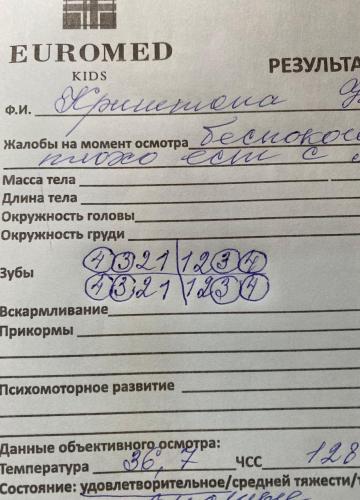 EUROMED
KIDS
РЕЗУЛЬТА
Ф.И. Кристина
Жалобы на момент осмотра беспокос
плохо ест с
Масса тела
Длина тела
Окружность головы
Окружность груди
Зубы
4 3 2 1 1 2 3 4
4 3 2 1 1 2 3 4
Вскармливание
Прикормы
Психомоторное развитие
Данные объективного осмотра:
Температура 36,7 ЧСС 128
Состояние: удовлетворительное/средней тяжести/т